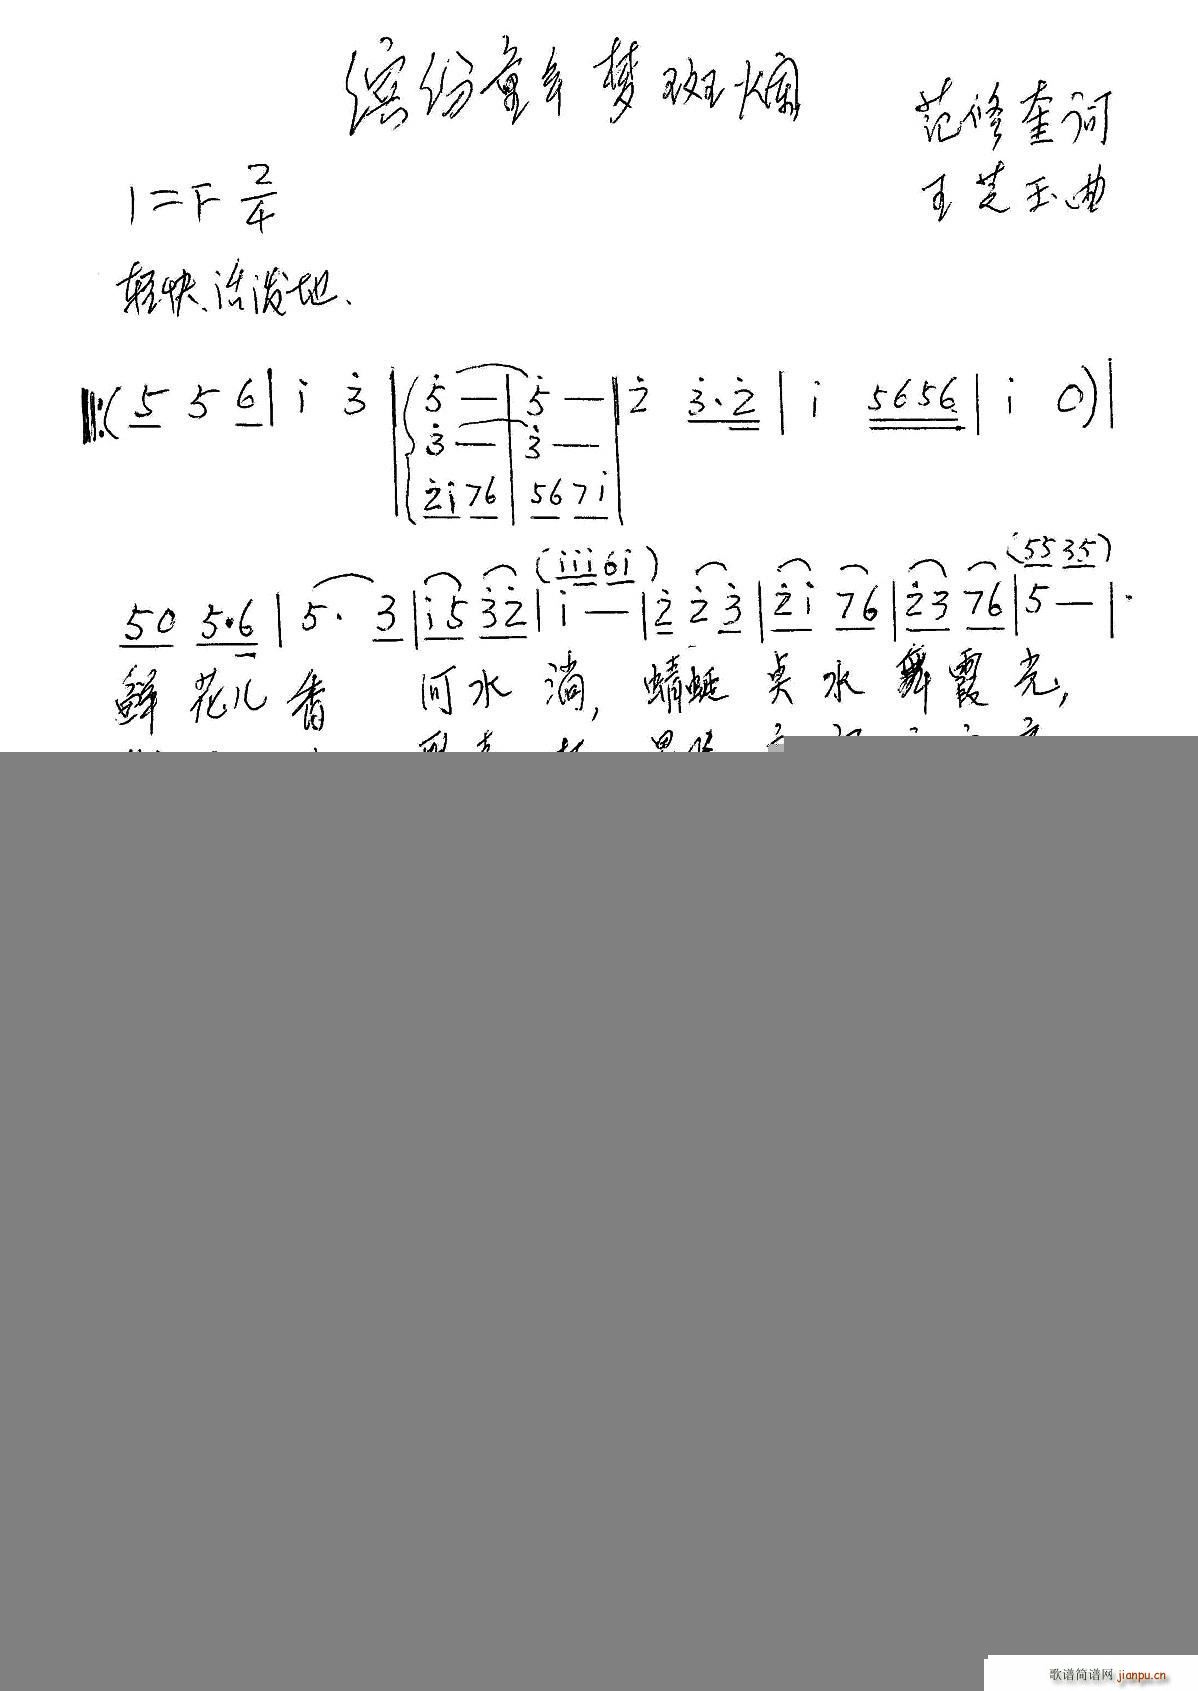 缤纷童年梦斑斓
范修奎词
王芝玉曲
1=F 2/4
轻快、活泼地.
‖:( 5 5 6 | i 3 | 5 — | 5 — | 2 3·2 | i 5656 | i 0 ) |
3 — | 3 — |
2i76 | 567i |
(iii6i) (5535)
50 5·6 | 5· 3 | i5 32 | i — | 2 2 3 | 2i 76 | 23 76 | 5 — |
鲜花儿香 河水淌, 蜻蜓点水舞霞光,
歌谱简谱网 jianpu.cn